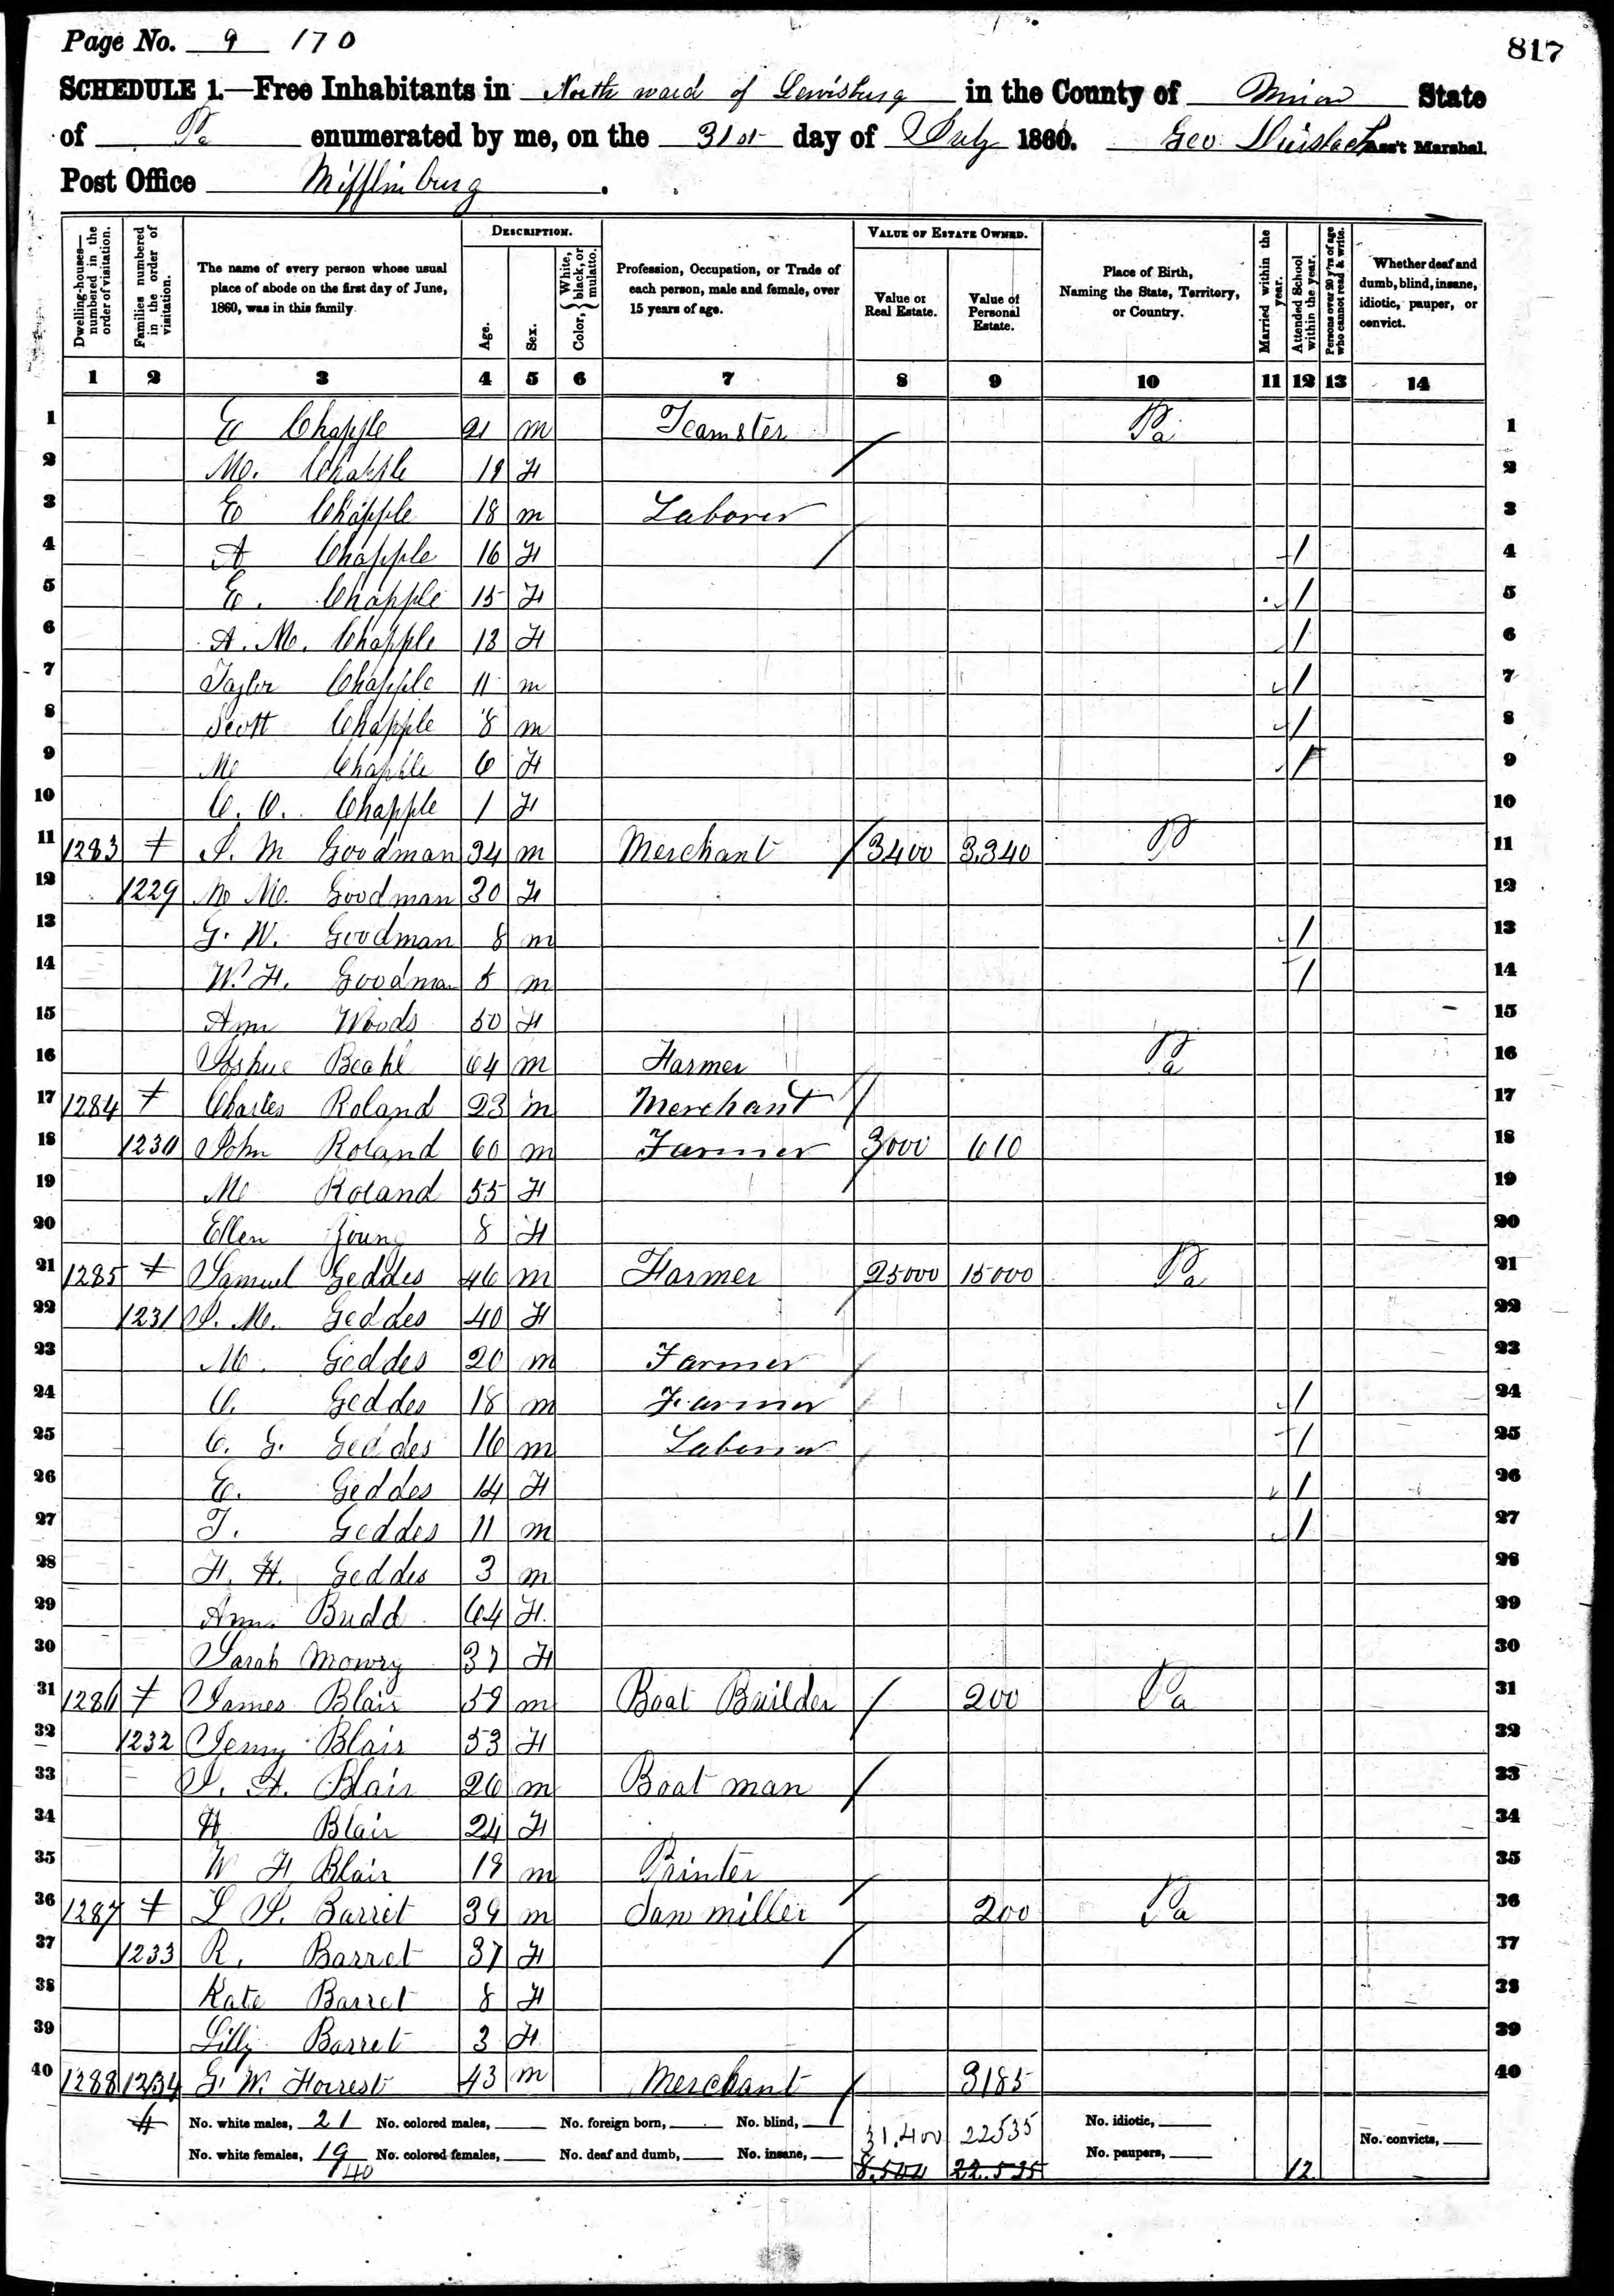 Page No. 9 170
817
SCHEDULE 1.—Free Inhabitants in North ward of Lewisburg in the County of Union State
of Pa enumerated by me, on the 31st day of July 1860. Geo Ass't Marshal.
Post Office Mifflinburg.
Dwelling-houses—numbered in the order of visitation.
Families numbered in the order of visitation.
The name of every person whose usual place of abode on the first day of June, 1860, was in this family
DESCRIPTION.
Age.
Sex.
Color, { White, black, or mulatto.
Profession, Occupation, or Trade of each person, male and female, over 15 years of age.
VALUE OF ESTATE OWNED.
Value of Real Estate.
Value of Personal Estate.
Place of Birth, Naming the State, Territory, or Country.
Married within the year.
Attended School within the year.
Persons over 20 y'rs of age who cannot read & write.
Whether deaf and dumb, blind, insane, idiotic, pauper, or convict.
1 2 3 4 5 6 7 8 9 10 11 12 13 14
1 E Chapple 21 m Teamster Pa 1
2 M. Chapple 19 F 2
3 E Chapple 18 m Laborer 3
4 A Chapple 16 F / 4
5 E. Chapple 15 F / 5
6 A. M. Chapple 13 F / 6
7 Taylor Chapple 11 m / 7
8 Scott Chapple 8 m / 8
9 M Chapple 6 F / 9
10 C. C. Chapple 1 F 10
11 1283 + S. M Goodman 34 m Merchant 3400 3.340 P 11
12 1229 M M. Goodman 30 F 12
13 G. W. Goodman 8 m / 13
14 W. H. Goodman 5 m / 14
15 Ann Woods 50 F 15
16 Joshua Beahl 64 m Farmer Pa 16
17 1284 + Charles Roland 23 m Merchant 17
18 1230 John Roland 60 m Farmer 3000 610 18
19 M Roland 55 F 19
20 Ellen Young 8 F 20
21 1285 + Samuel Geddes 46 m Farmer 25000 15000 Pa 21
22 1231 S. M. Geddes 40 F 22
23 M. Geddes 20 m Farmer 23
24 C. Geddes 18 m Farmer / 24
25 C. G. Geddes 16 m Laborer / 25
26 E. Geddes 14 F / 26
27 T. Geddes 11 m / 27
28 H. H. Geddes 3 m 28
29 Ann Budd 64 F. 29
30 Sarah Mowry 37 F 30
31 1286 + James Blair 59 m Boat Builder 200 Pa 31
32 1232 Jenny Blair 53 F 32
33 S. A. Blair 26 m Boat man 33
34 H Blair 24 F 34
35 W H Blair 19 m Printer 35
36 1287 + L S. Barret 39 m Saw miller 200 Pa 36
37 1233 R. Barret 37 F 37
38 Kate Barret 8 F 38
39 Lilly Barret 3 F 39
40 1288 1234 G. W. Forrest 43 m Merchant 3185 40
No. white males, 21 No. colored males, No. foreign born, No. blind, 31.400 22535 No. idiotic,
No. white females, 19 No. colored females, No. deaf and dumb, No. insane, No. paupers, No. convicts,
40 8.500 22.535 12